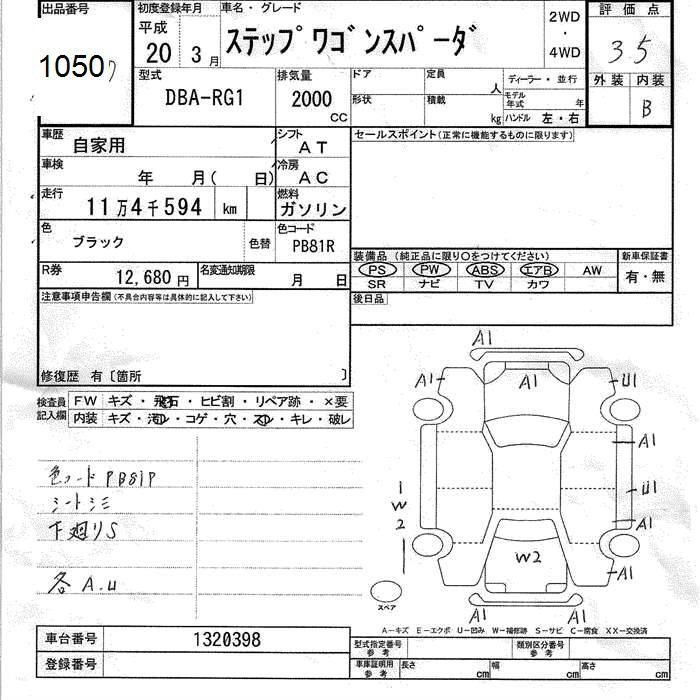 出品番号
初度登録年月
車名・グレード
2WD
・
4WD
評価点
10507
平成
20 3月
ステップワゴンスパーダ
35
型式
DBA-RG1
排気量
2000
CC
ドア
定員
人
ディーラー・並行
形状
積載
kg
モデル年式
年
ハンドル 左・右
外装 内装
B
車歴
自家用
シフト
AT
セールスポイント(正常に機能するものに限ります)
車検
年 月( 日)
冷房
AC
走行
11万4千594 km
燃料
ガソリン
色
ブラック
色替
色コード
PB81R
装備品 (純正品に限り〇をつけてください)
新車保証書
PS PW ABS エアB AW
有・無
SR ナビ TV カワ
R券
12,680 円
名変通知期限
月 日
後日品
注意事項申告欄(不具合内容等は具体的に記入して下さい)
修復歴 有〔箇所 〕
検査員
記入欄
FW キズ・飛石・ヒビ割・リペア跡・×要
内装 キズ・汚レ・コゲ・穴・スレ・キレ・破レ
色コード PB81P
シートシミ
下廻りS
各 A.U
A1
A1
A1
U1
A1
U1
A1
1
W
2
W2
A1
A1
A1
スペア
A−キズ E−エクボ U−凹み W−補修跡 S−サビ C−腐食 XX−交換済
車台番号
1320398
登録番号
型式指定番号
参考
類別区分番号
参考
車庫証明用
参考
長さ
cm
幅
cm
高さ
cm